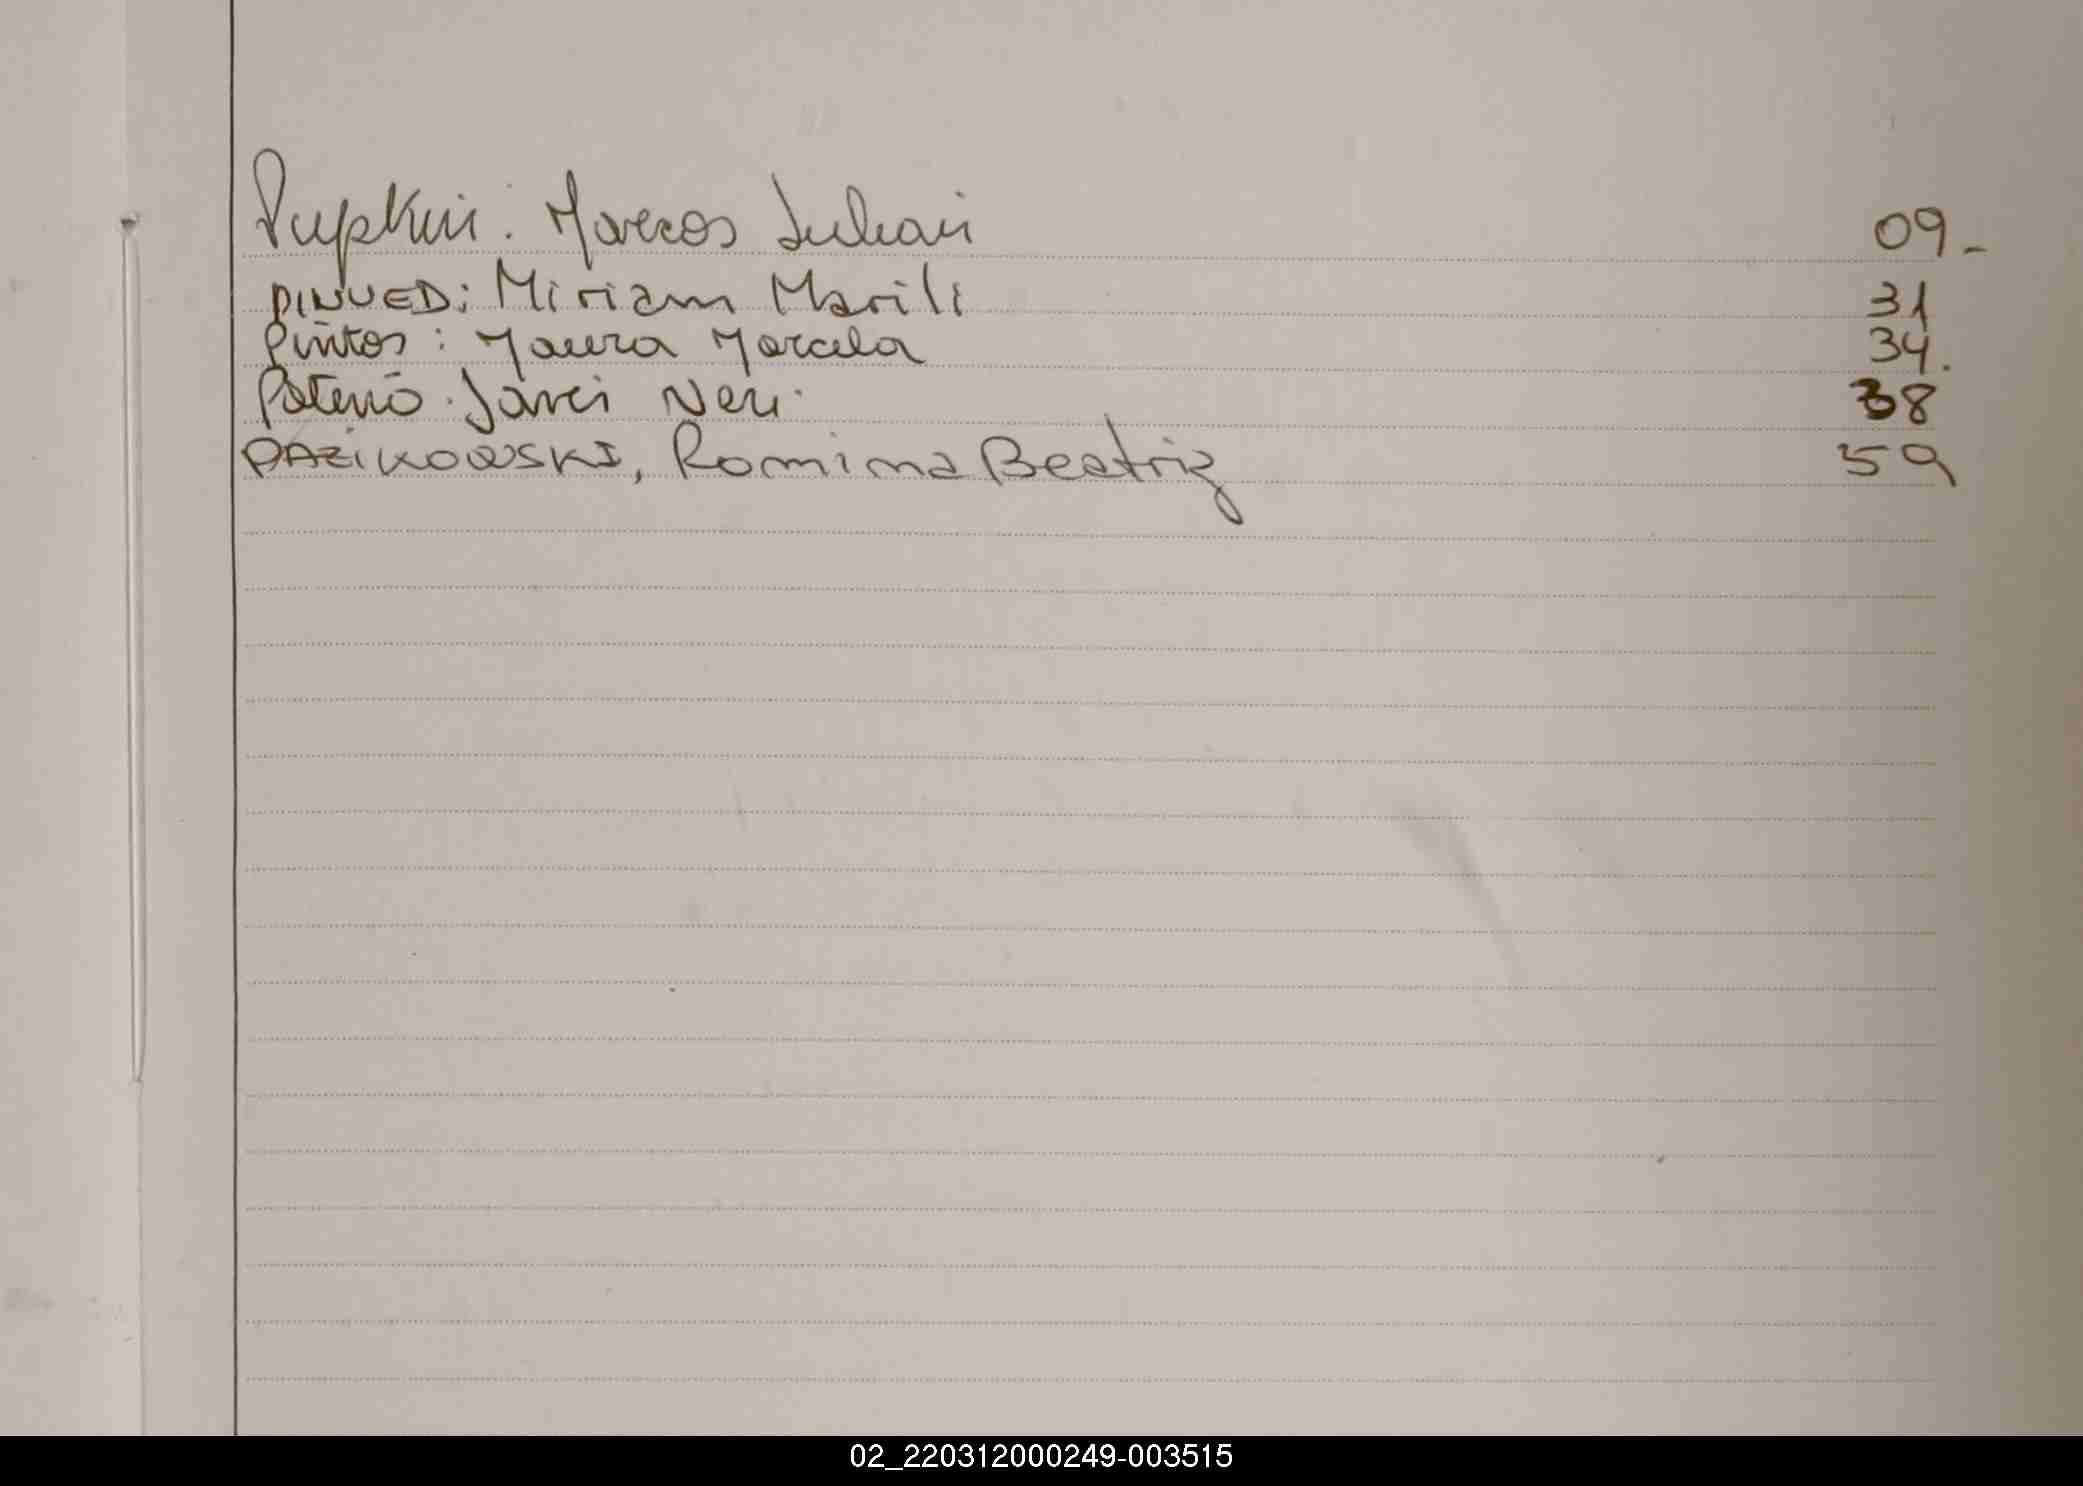 Pupkin. Marcos Julian 09-
PINUED: Miriam Marili 31
Pintos: Maura Marcela 34.
Neri. 38
PAZIKOWSKI, Romina Beatriz 59
02_220312000249-003515